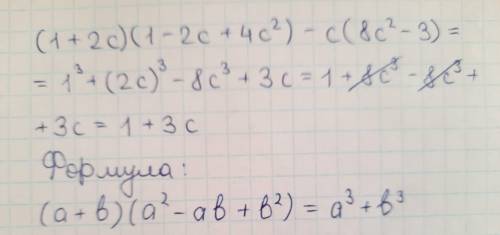 (1+2c)(1-2c+4c²)-c(8c²-3)=
=1³+(2c)³-8c³+3c=1+8c³-8c³+
+3c=1+3c
Формула:
(a+b)(a²-ab+b²)=a³+b³